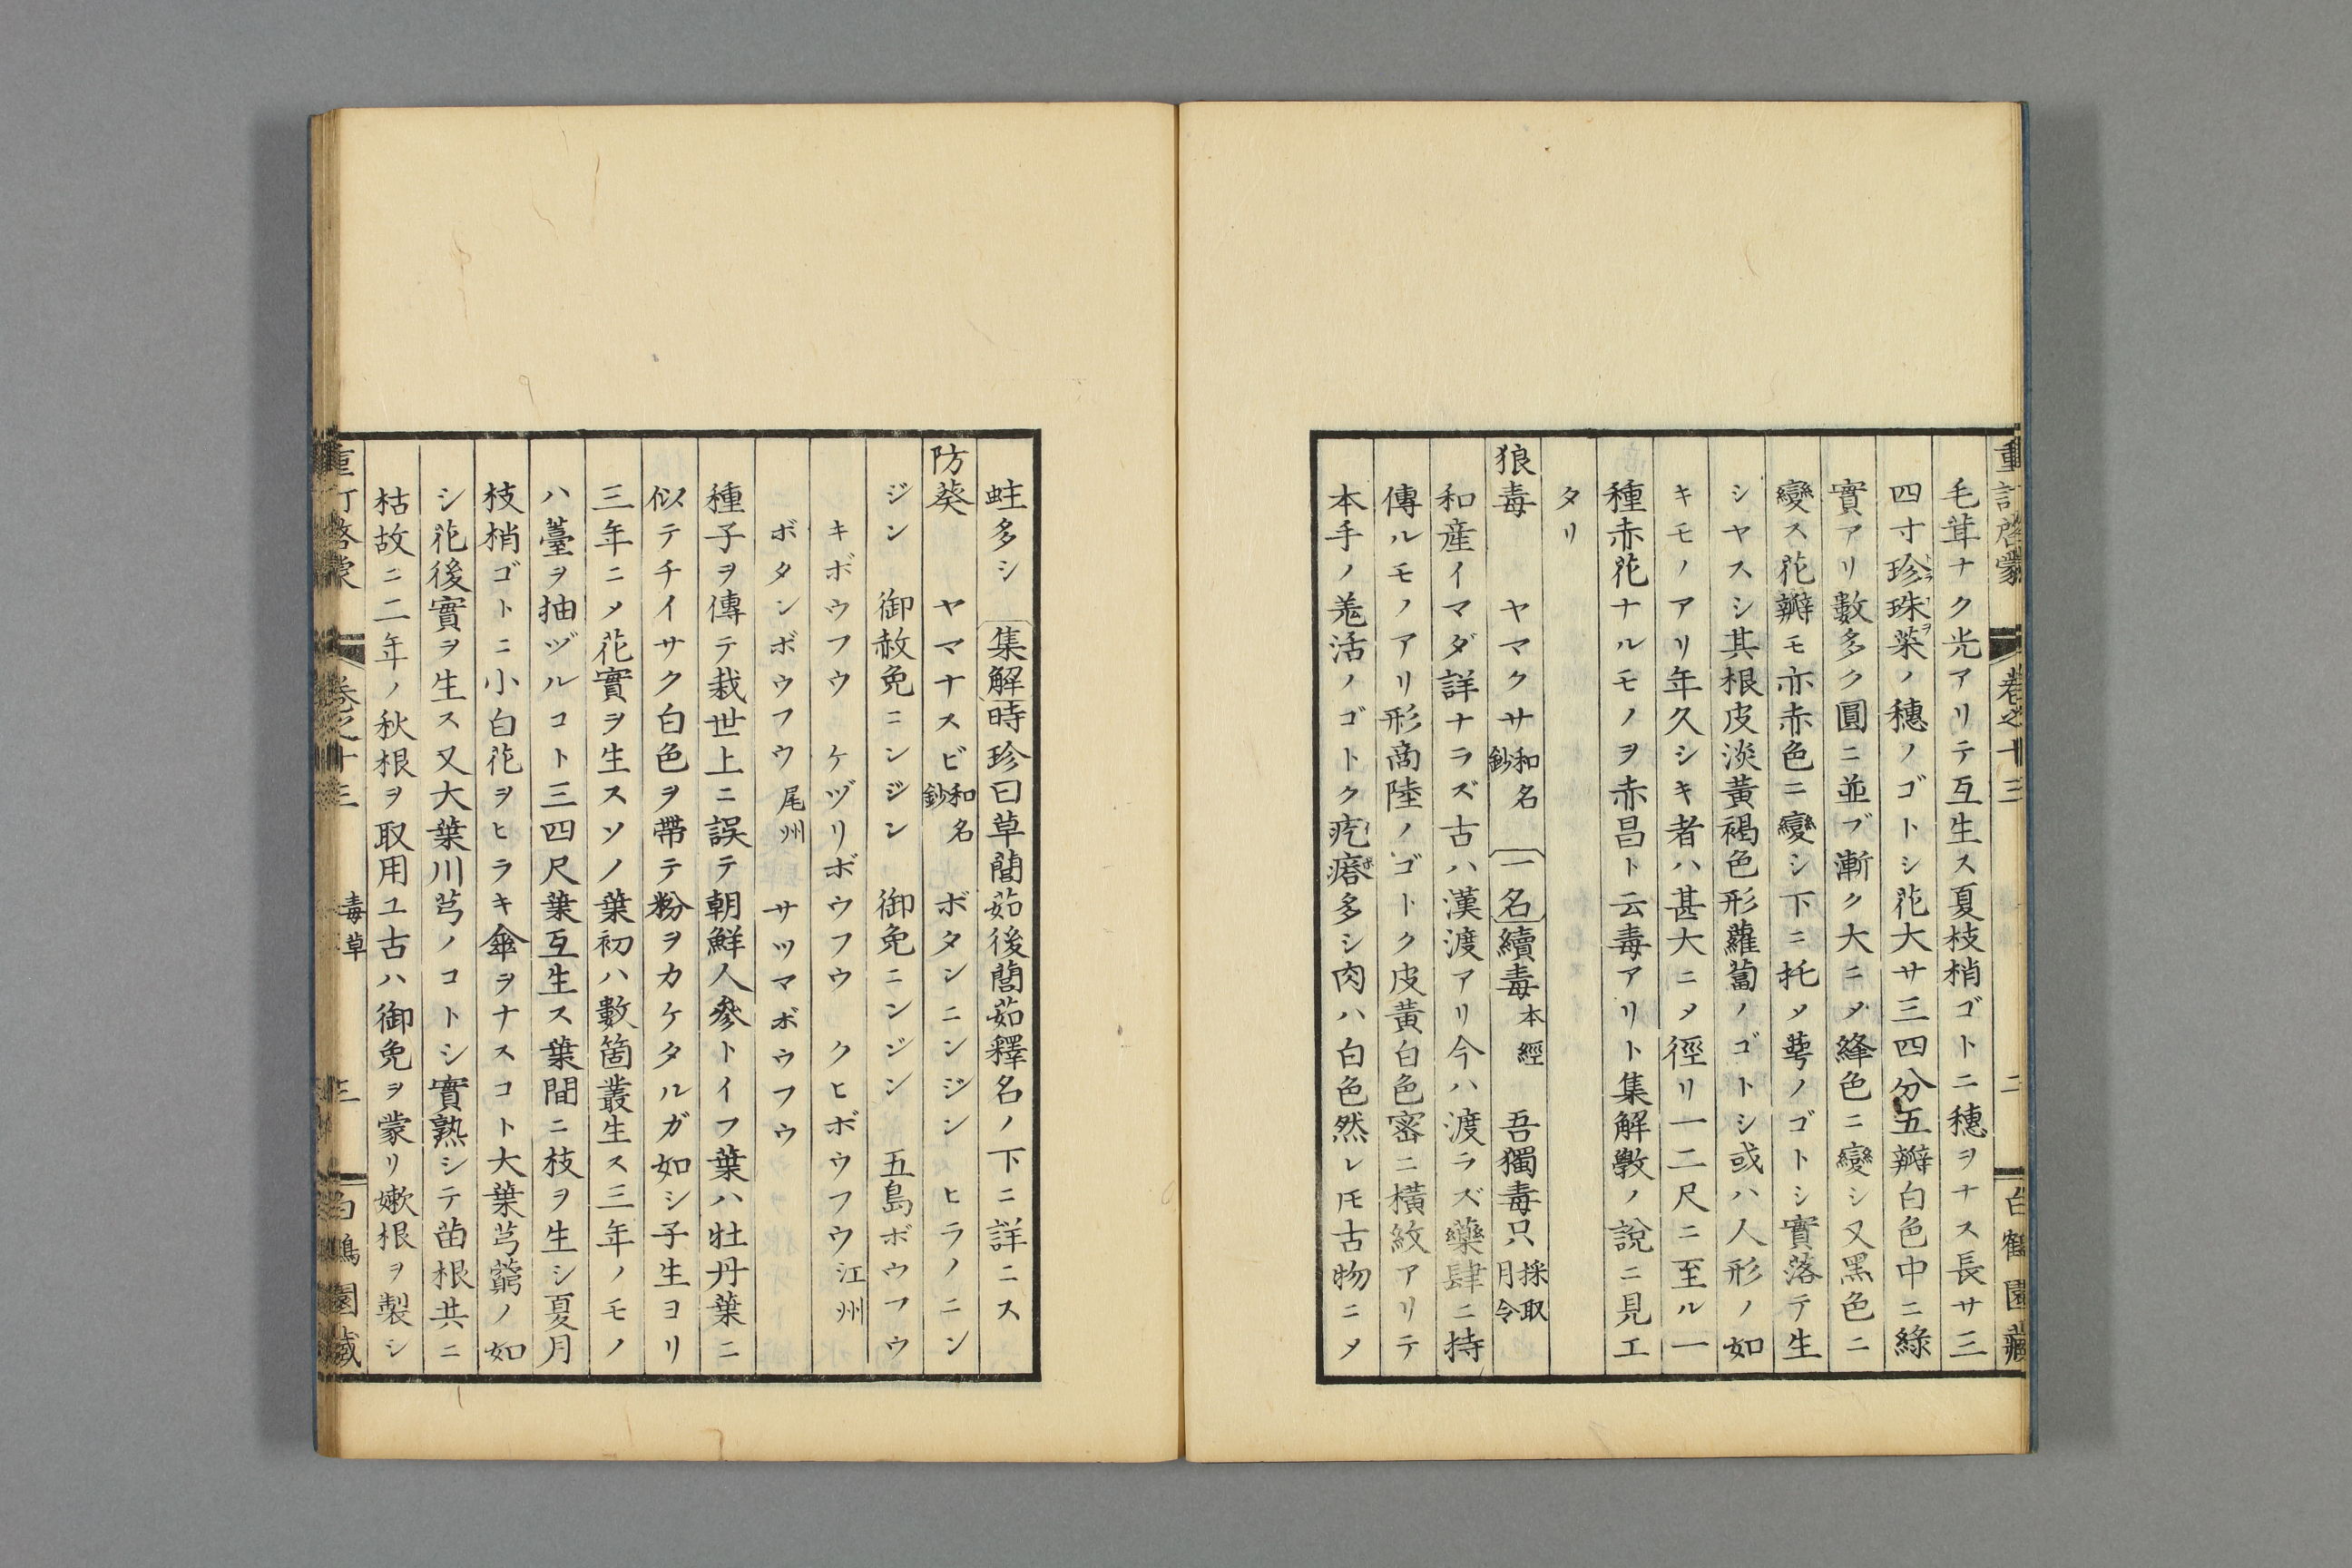 重訂啓蒙 卷之十三 二 白鶴園藏
毛茸ナク光アリテ互生ス夏枝梢ゴトニ穗ヲナス長サ三
四寸珍珠菜ノ穗ノゴトシ花大サ三四分五瓣白色中ニ綠
實アリ數多ク圓ニ並ブ漸ク大ニメ絳色ニ變シ又黑色ニ
變ス花瓣モ亦赤色ニ變シ下ニ托メ萼ノゴトシ實落テ生
シヤスシ其根皮淡黃褐色形蘿蔔ノゴトシ或ハ人形ノ如
キモノアリ年久シキ者ハ甚大ニメ徑リ一二尺ニ至ル一
種赤花ナルモノヲ赤昌ト云毒アリト集解斆ノ說ニ見エ
タリ
狼毒 ヤマクサ和名鈔 一名續毒本經 吾獨毒只採取月令
和産イマダ詳ナラズ古ハ漢渡アリ今ハ渡ラズ藥肆ニ持
傳ルモノアリ形商陸ノゴトク皮黃白色密ニ橫紋アリテ
本手ノ羗活ノゴトク疙瘩多シ肉ハ白色然レ𪜈古物ニメ
蛀多シ 集解時珍曰草䕡茹後䕡茹釋名ノ下ニ詳ニス
防葵 ヤマナスビ和名鈔 ボタンニンジン ヒラノニン
ジン 御赦免ニンジン 御免ニンジン 五島ボウフウ
キボウフウ ケヅリボウフウ クヒボウフウ江州
ボタンボウフウ尾州 サツマボウフウ
種子ヲ傳テ栽世上ニ誤テ朝鮮人參トイフ葉ハ牡丹葉ニ
似テチイサク白色ヲ帶テ粉ヲカケタルガ如シ子生ヨリ
三年ニメ花實ヲ生スソノ葉初ハ數箇叢生ス三年ノモノ
ハ薹ヲ抽ヅルコト三四尺葉互生ス葉間ニ枝ヲ生シ夏月
枝梢ゴトニ小白花ヲヒラキ傘ヲナスコト大葉芎藭ノ如
シ花後實ヲ生ス又大葉川芎ノコトシ實熟シテ苗根共ニ
枯故ニ二年ノ秋根ヲ取用ユ古ハ御免ヲ蒙リ嫩根ヲ製シ
重訂啓蒙 卷之十三 毒草 三 白鶴園藏